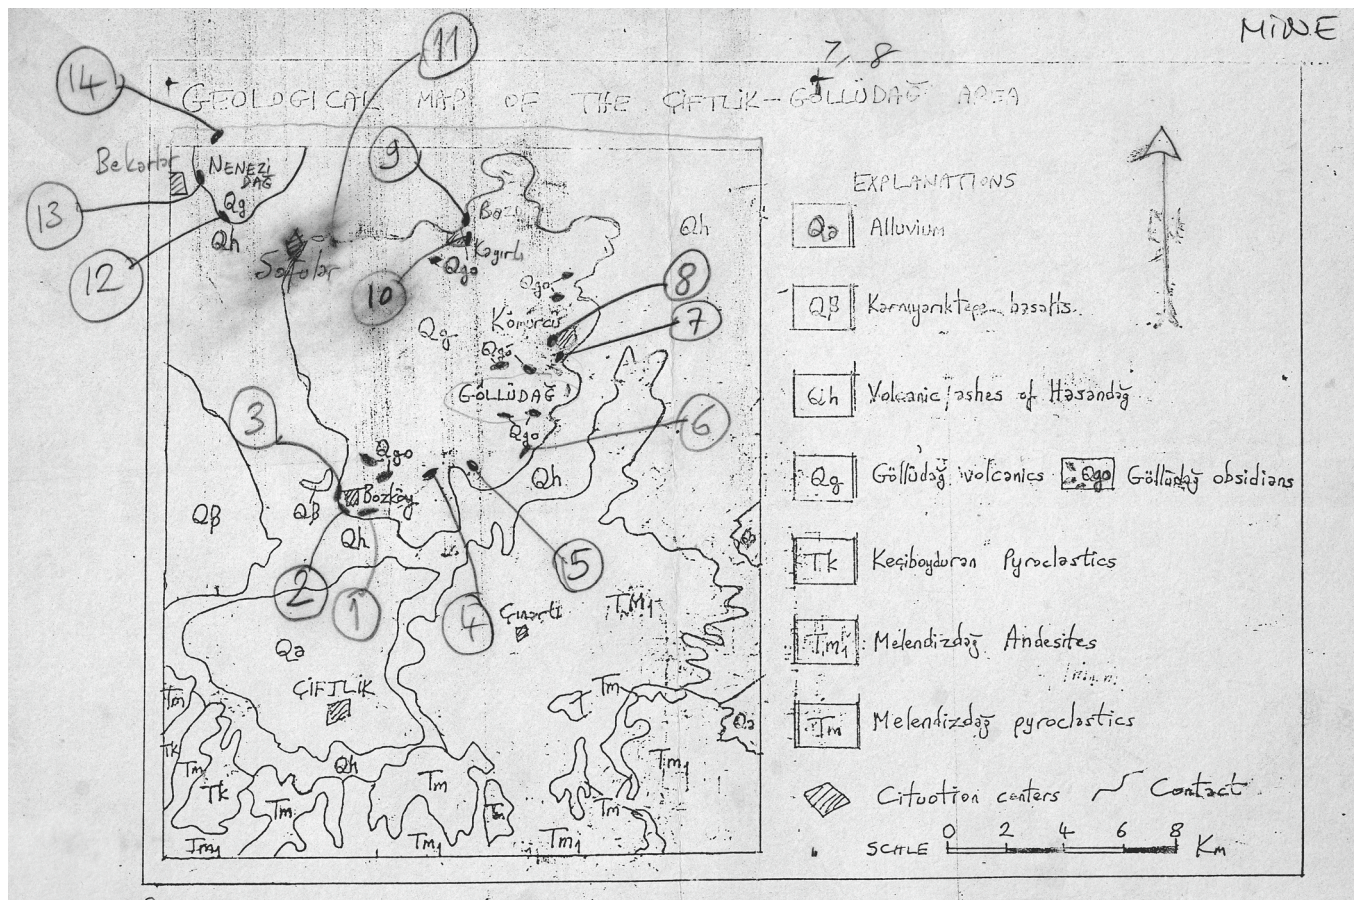 MİNE
7, 8
GEOLOGICAL MAP OF THE ÇİFTLİK-GÖLLÜDAĞ AREA
14
11
9
13
12
10
8
7
3
6
2
1
4
5
Bekarlar
NENEZİ
DAĞ
Qg
Qh
Sofular
Kağırlı
Qgo
Qh
Qgo
Kömürcü
Qg
Qgo
GÖLLÜDAĞ
Qgo
Qgo
Bozköy
Qh
Qβ
Qβ
Qh
Qa
ÇİFTLİK
Çınarlı
TM1
Tm
Tm
Tk
Tm
Tk
Tm
Tm1
Qh
Tm
Tm1
Tm
Tm1
Tm
Tm1
Qa
EXPLANATIONS
Qa Alluvium
Qβ Karnıyarıktepe basalts
Qh Volcanic ashes of Hasandağ
Qg Göllüdağ volcanics Qgo Göllüdağ obsidians
Tk Keçiboyduran Pyroclastics
Tm1 Melendizdağ Andesites
Tm Melendizdağ pyroclastics
Cituation centers Contact
SCALE 0 2 4 6 8 Km